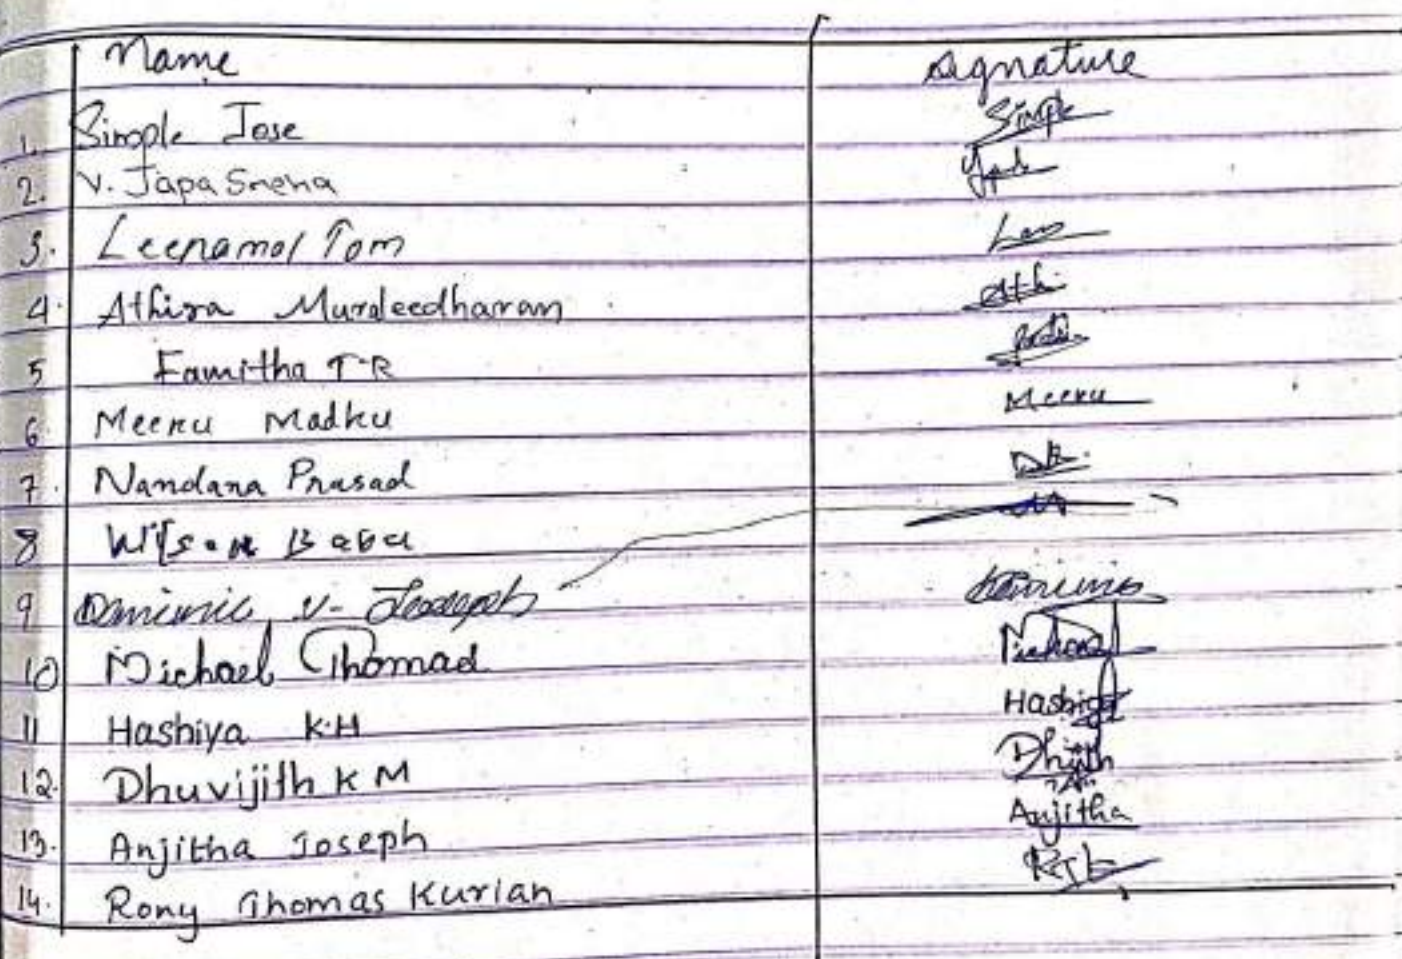 Name Signature
1. Simple Jose Simple
2. V. Japa Sneha
3. Leenamol Tom
4. Athira Muraleedharan Ath
5 Famitha T R
6. Meenu Madhu Meenu
7. Nandana Prasad
8 Wilson Babu
9 V. Joseph
10 Michael Thomas Michael
11 Hashiya K.H Hashiya
12. Dhuvijith K M
13. Anjitha Joseph Anjitha
14. Rony Thomas Kurian RTK